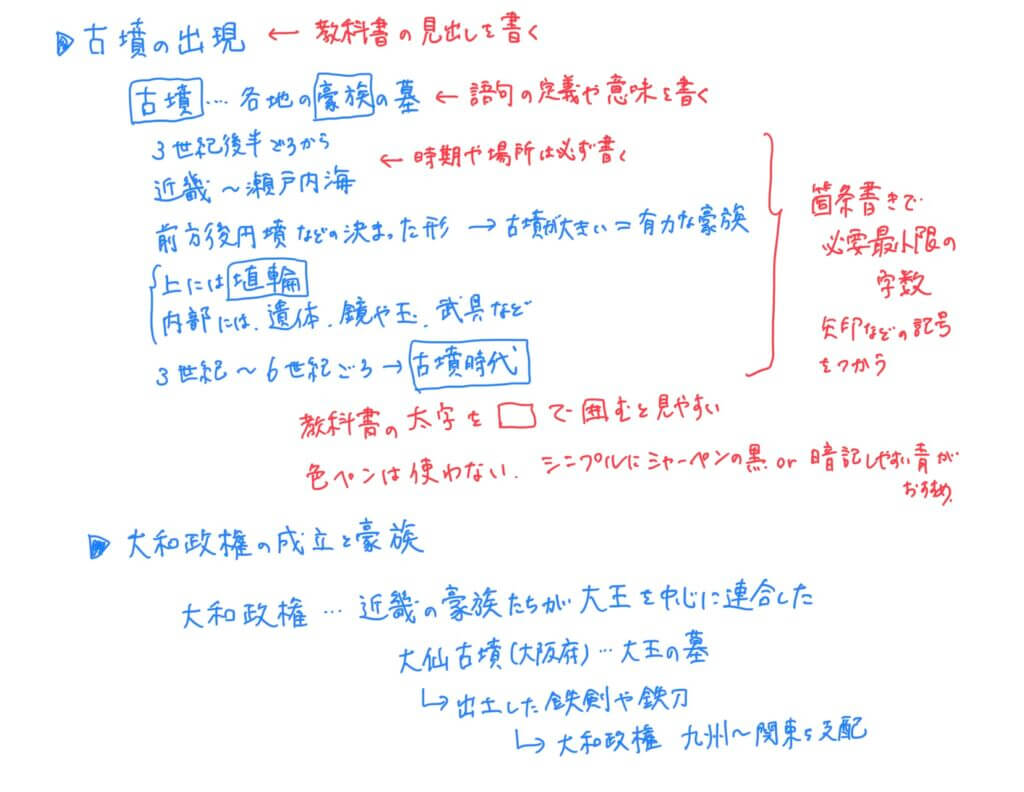 ▶ 古墳の出現 ← 教科書の見出しを書く
古墳 … 各地の豪族の墓 ← 語句の定義や意味を書く
3世紀後半ごろから
← 時期や場所は必ず書く
近畿〜瀬戸内海
前方後円墳などの決まった形 → 古墳が大きい=有力な豪族
上には埴輪
内部には、遺体、鏡や玉、武具など
3世紀〜6世紀ごろ→古墳時代
箇条書きで
必要最小限の
字数
矢印などの記号
をつかう
教科書の太字を□で囲むと見やすい
色ペンは使わない. シンプルにシャーペンの黒 or 暗記しやすい青が
おすすめ.
▶ 大和政権の成立と豪族
大和政権 … 近畿の豪族たちが大王を中心に連合した
大仙古墳(大阪府)…大王の墓
↳出土した鉄剣や鉄刀
↳大和政権 九州〜関東を支配